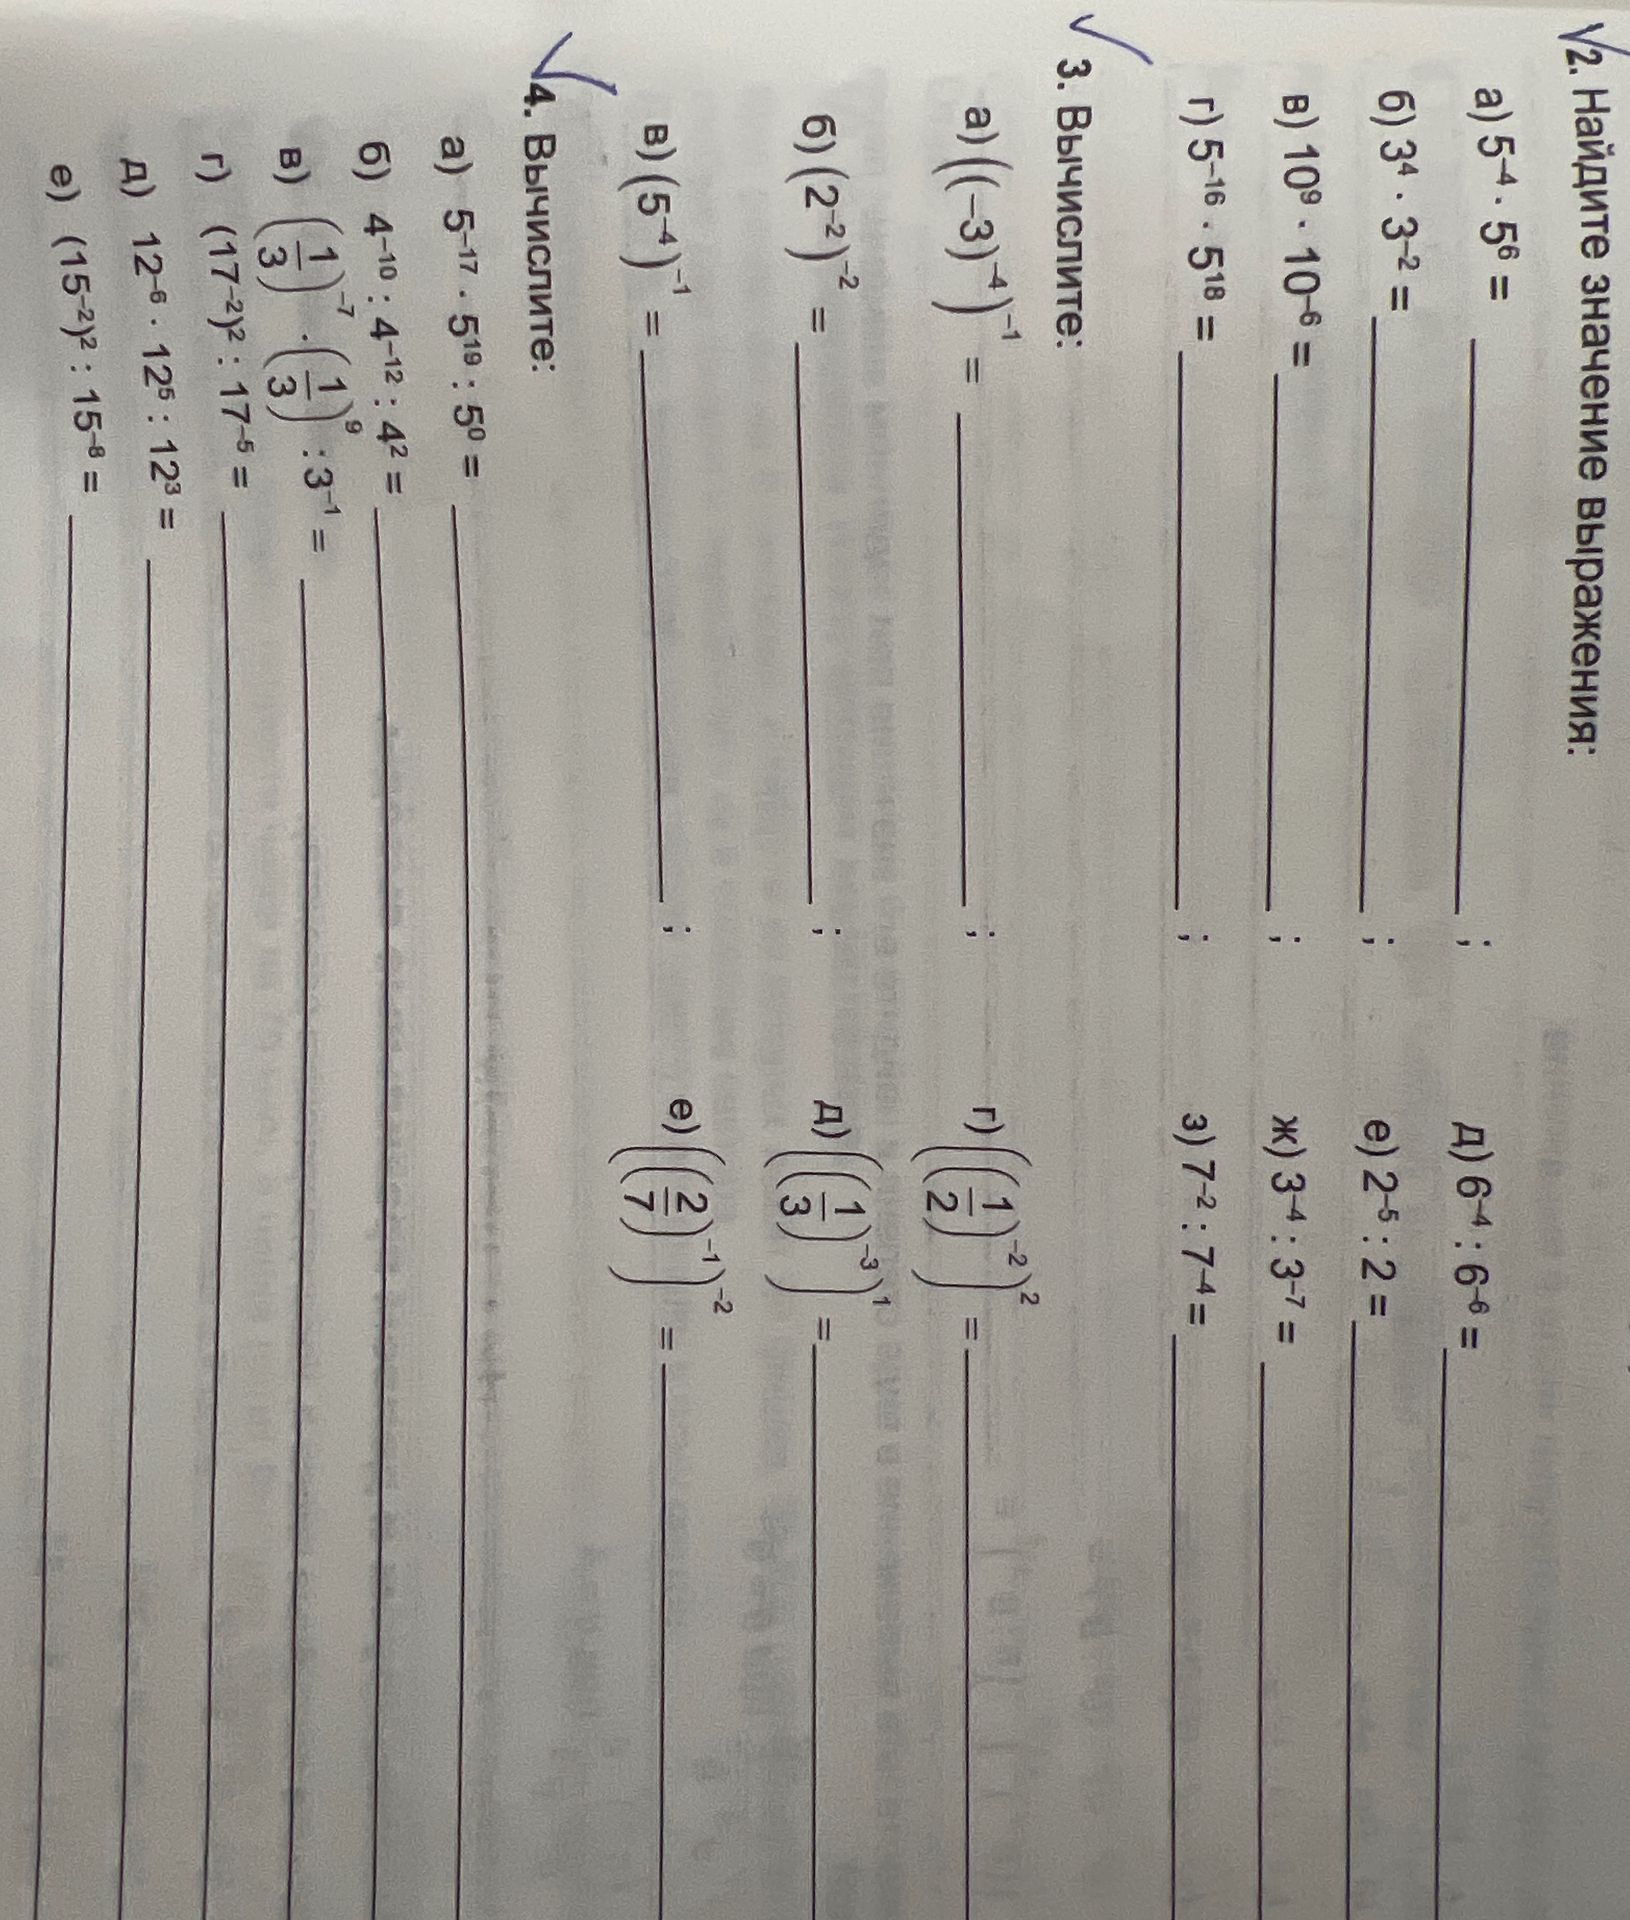 √2. Найдите значение выражения:
а) 5⁻⁴ · 5⁶ = ; д) 6⁻⁴ : 6⁻⁶ =
б) 3⁴ · 3⁻² = ; е) 2⁻⁵ : 2 =
в) 10⁹ · 10⁻⁶ = ; ж) 3⁻⁴ : 3⁻⁷ =
г) 5⁻¹⁶ · 5¹⁸ = ; з) 7⁻² : 7⁻⁴ =
✓ 3. Вычислите:
а) ((−3)⁻⁴)⁻¹ = ; г) ((1/2)⁻²)² =
б) (2⁻²)⁻² = ; д) ((1/3)⁻³)¹ =
в) (5⁻⁴)⁻¹ = ; е) ((2/7)⁻¹)⁻² =
✓ 4. Вычислите:
а) 5⁻¹⁷ · 5¹⁹ : 5⁰ =
б) 4⁻¹⁰ : 4⁻¹² : 4² =
в) (1/3)⁻⁷ · (1/3)⁹ : 3⁻¹ =
г) (17⁻²)² : 17⁻⁵ =
д) 12⁻⁶ · 12⁵ : 12³ =
е) (15⁻²)² : 15⁻⁸ =